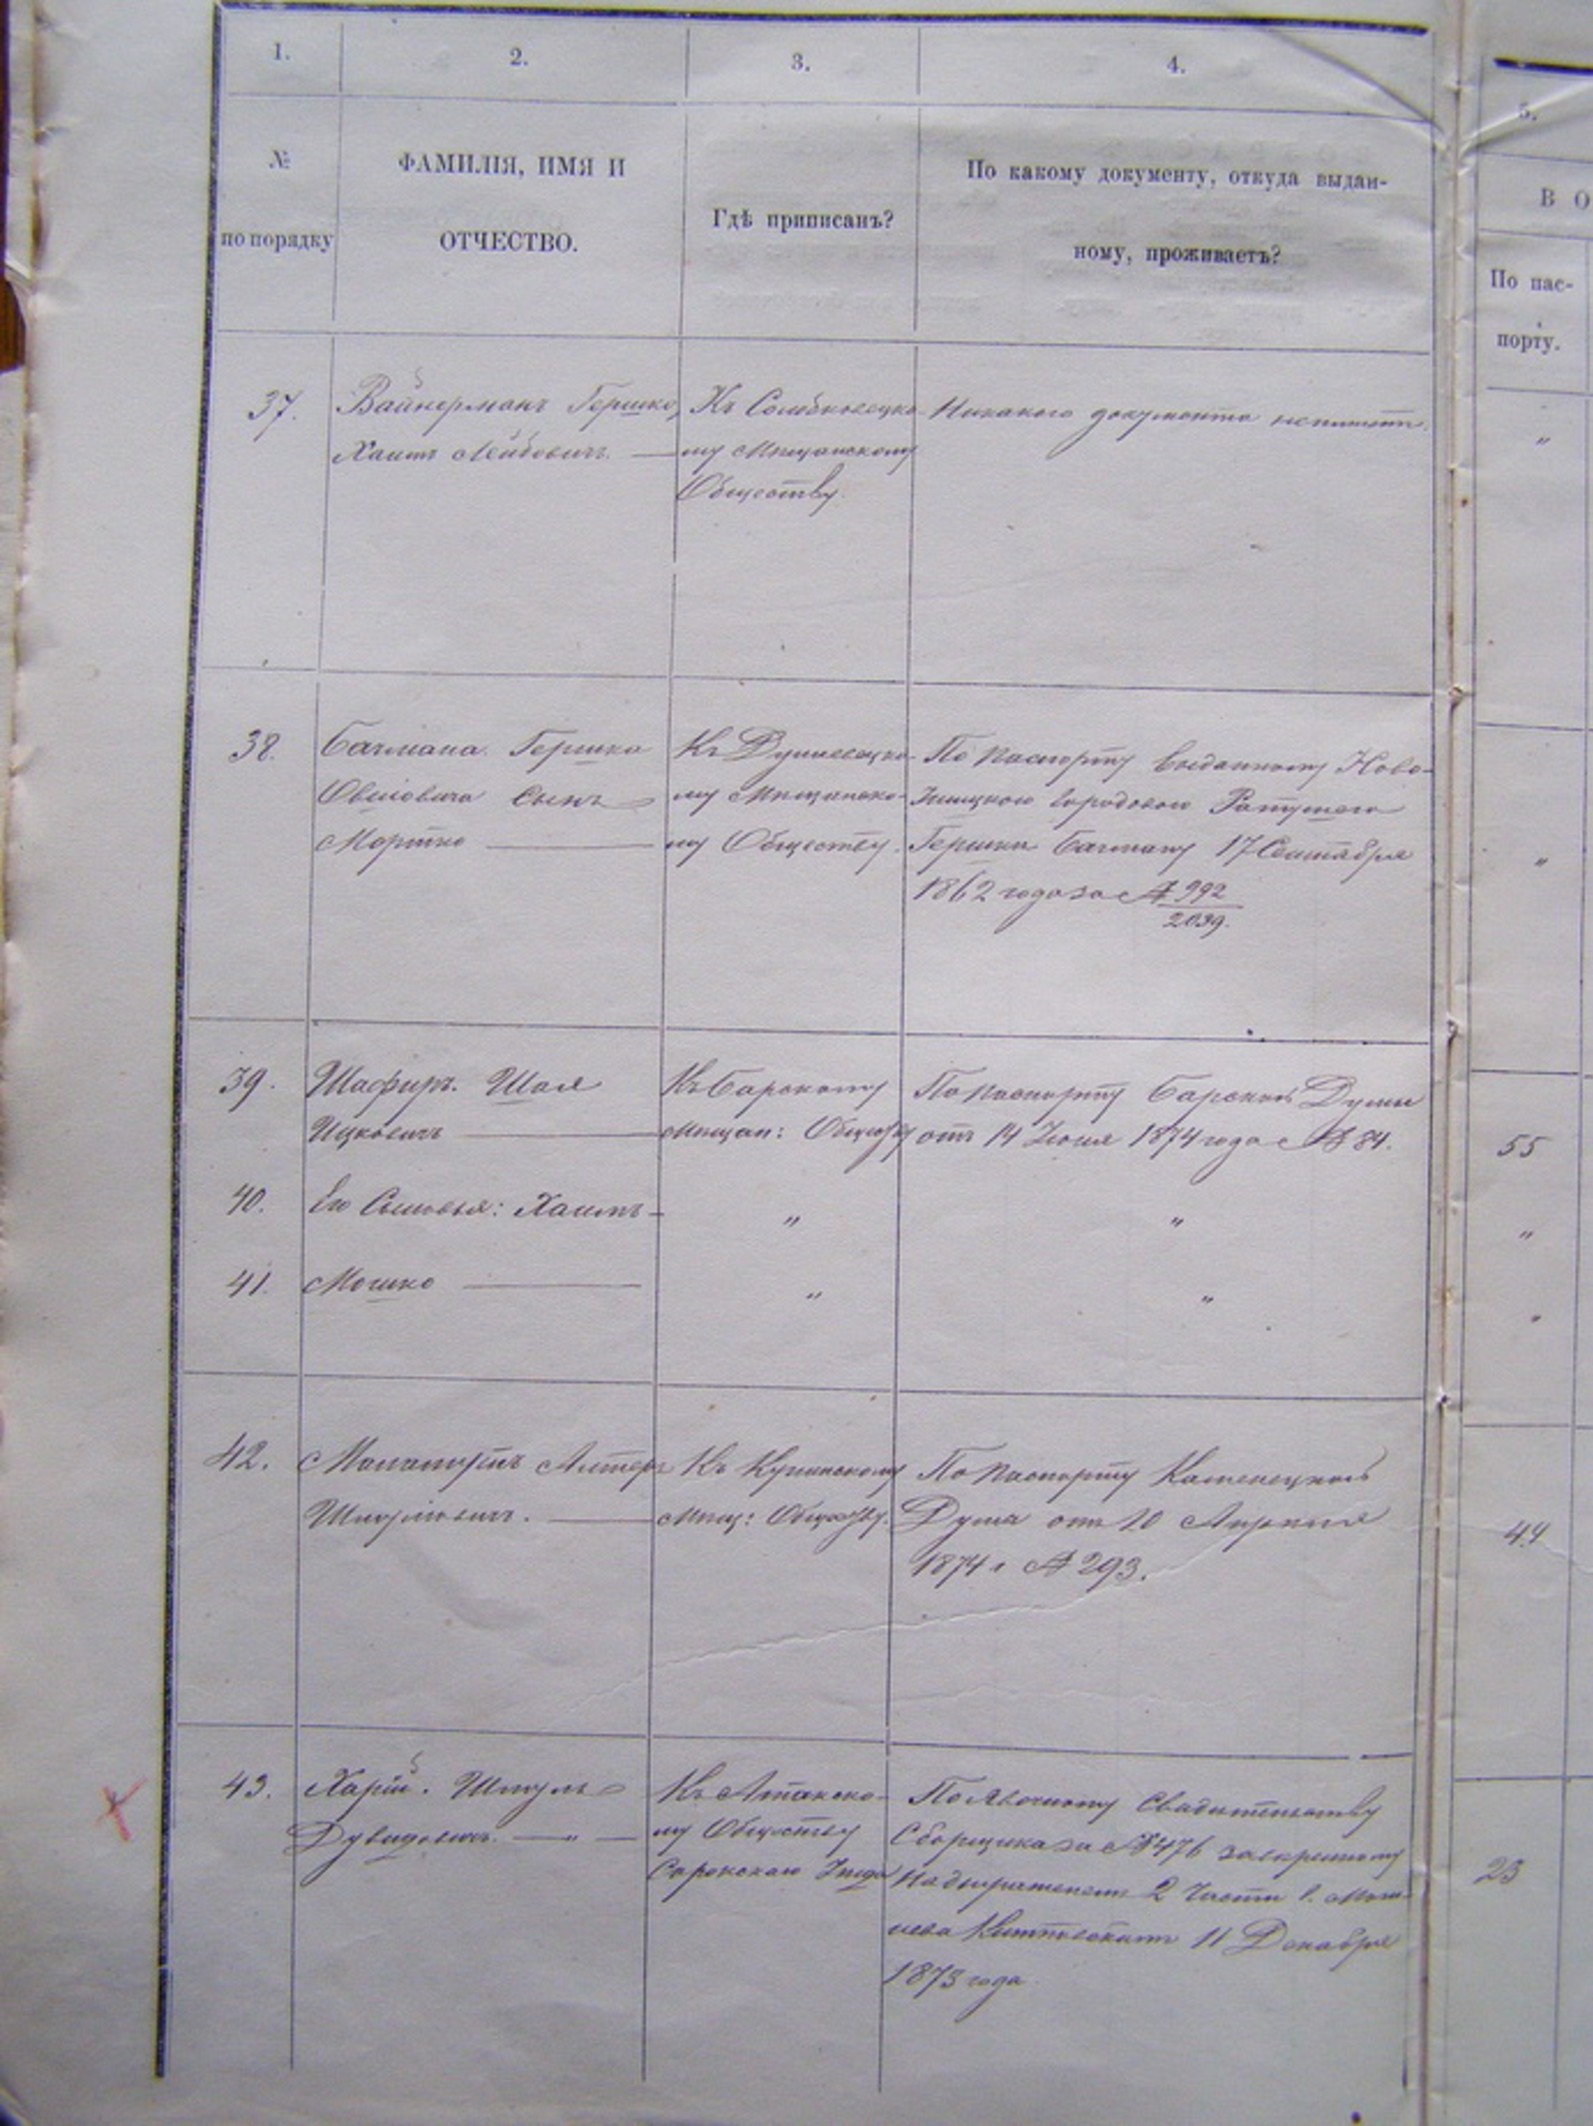 1. 2. 3. 4.
№ по порядку
ФАМИЛІЯ, ИМЯ И
ОТЧЕСТВО.
Гдѣ приписанъ?
По какому документу, откуда выдан-
ному, проживаетъ?
5.
В О
По пас-
порту.
37.
Вайнерманъ Гершко,
Хаимъ Лейбовичъ.
Къ
му Мѣщанскому
Обществу.
Никакого документа неимѣетъ.
"
38.
Бачмана Гершка
сынъ
Мортко
Къ Дунаевецко-
му Мѣщанско-
му Обществу.
По паспорту выданному Ново-
городового
Гершки Бачману 17 Сентября
1862 года за № 992
2039.
"
39.
Шафиръ. Шая
Ицковичъ
Къ Барскому
Мѣщан: Обществу
По паспорту Барской Думы
отъ 14 Іюня 1874 года № 84.
55
40.
Его Сыновья: Хаимъ
"
"
"
41.
Мошко
"
"
"
42.
Алтеръ
Шмулiовичъ.
Къ Купинскому
Мѣщ: Обществу.
По паспорту Каменецкой
Дума отъ 20 Апрѣля
1874 г № 293.
44
43.
Харій. Шмуль
Дувидовичъ. "
Къ Атакско-
му Обществу
Сорокскаго Уѣзда
По явочному Свидѣтельству
Сборщика за № 476
Надзирателемъ 2 Части г. Моги-
лева 11 Декабря
1873 года
23